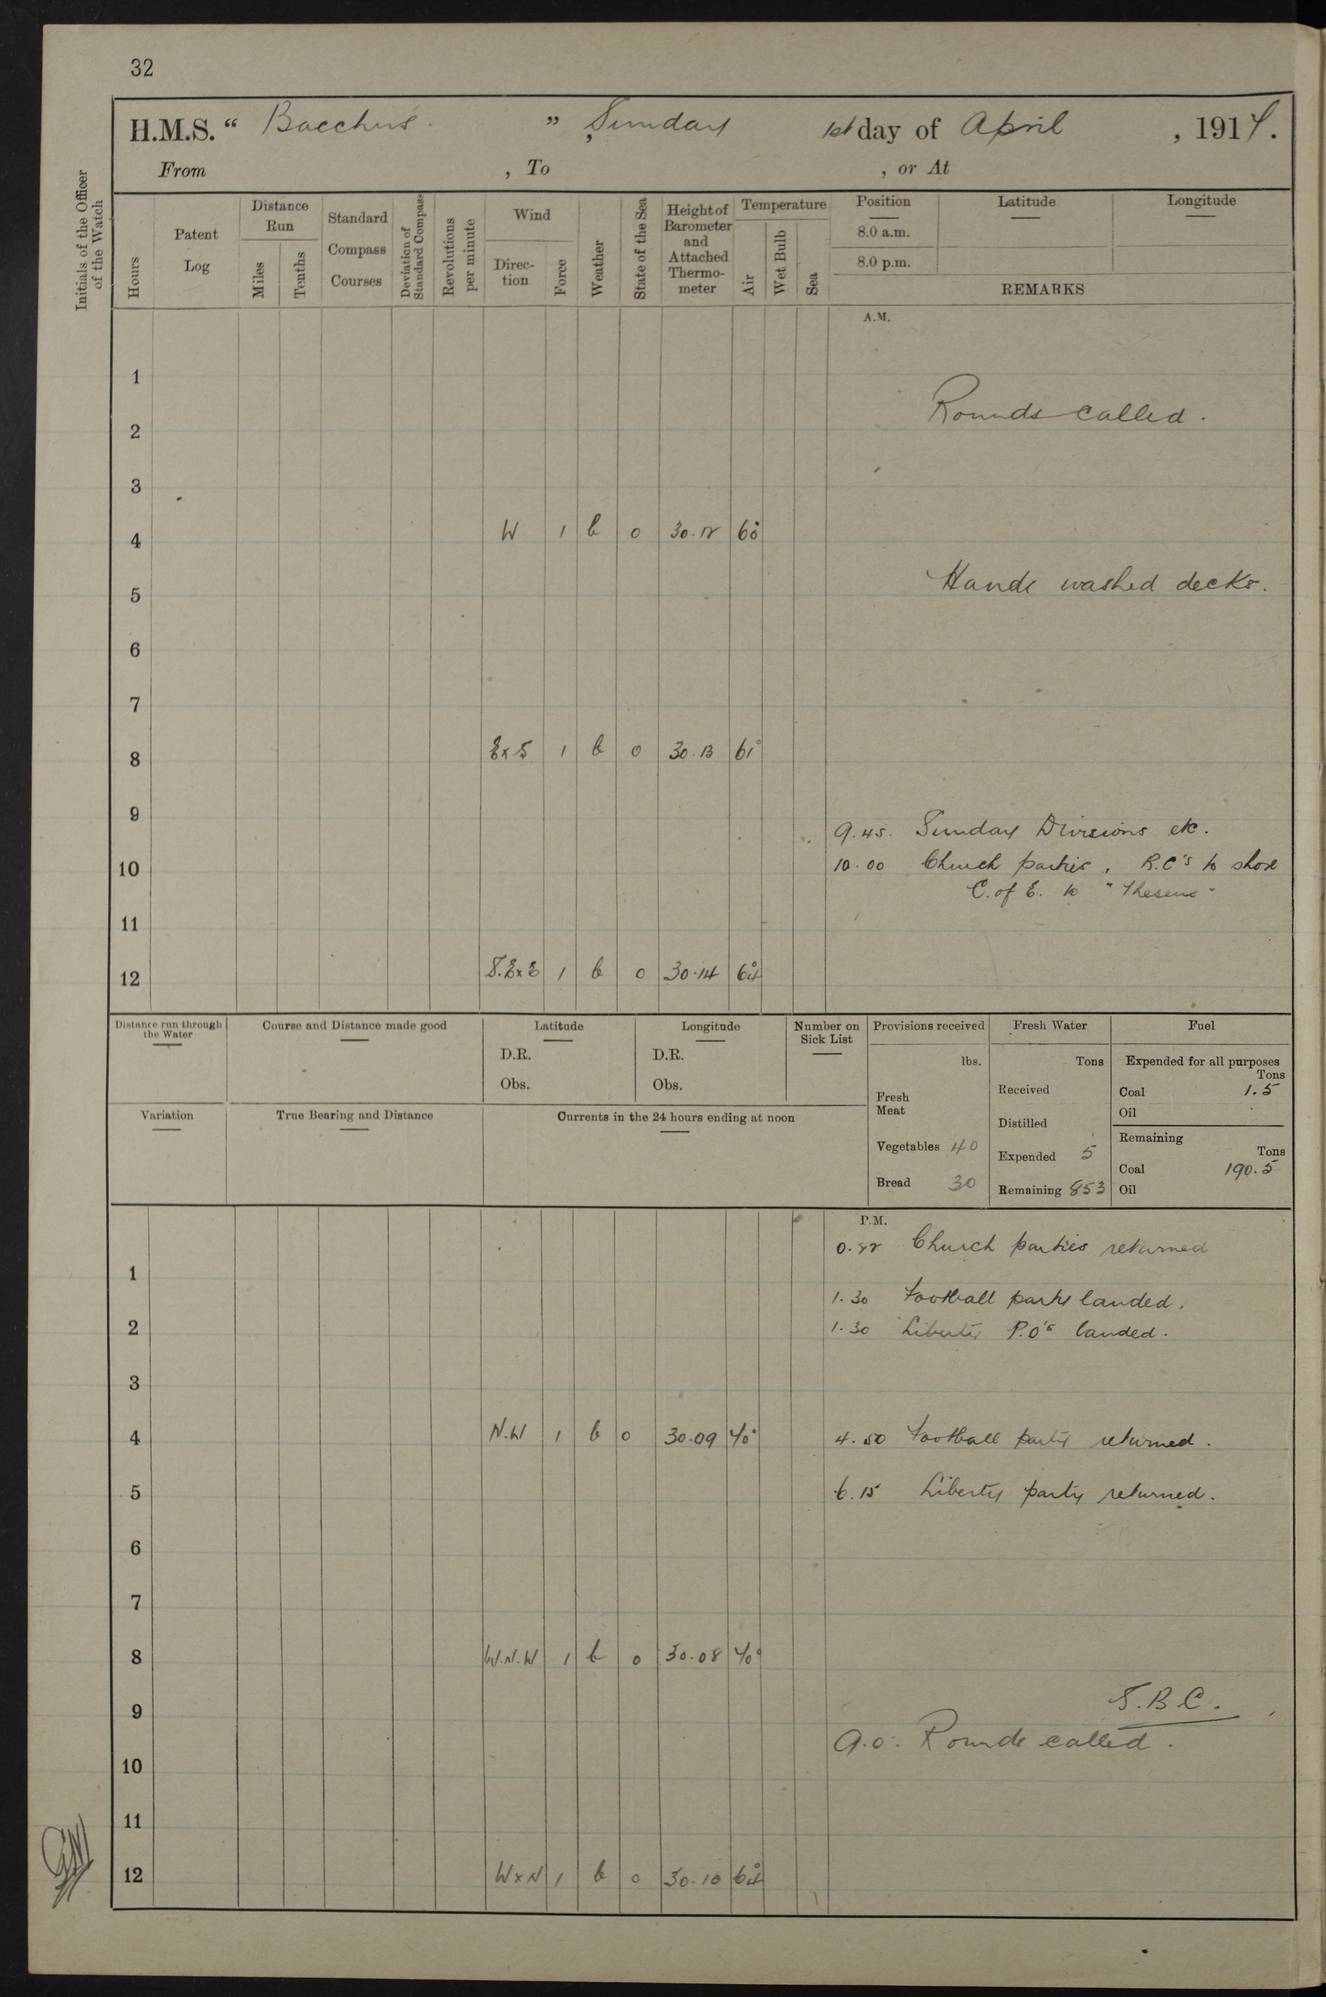 32
H.M.S. “ Bacchus ” , Sunday 1st day of April , 1917.
From , To , or At
Initials of the Officer of the Watch
Hours
Patent Log
Distance Run
Miles
Tenths
Standard Compass Courses
Deviation of Standard Compass
Revolutions per minute
Wind
Direc-tion
Force
Weather
State of the Sea
Height of Barometer and Attached Thermo-meter
Temperature
Air
Wet Bulb
Sea
Position
8.0 a.m.
8.0 p.m.
Latitude
Longitude
REMARKS
A.M.
1
Rounds called.
2
3
4 W 1 b 0 30.12 60°
Hands washed decks.
5
6
7
8 E x S 1 b 0 30.13 61°
9
9.45. Sunday Divisions etc.
10 10.00 Church parties, R.C's to shore
C. of E. to "Theseus"
11
12 S.E x E 1 b 0 30.14 64°
Distance run through the Water
Course and Distance made good
Latitude
D.R.
Obs.
Longitude
D.R.
Obs.
Number on Sick List
Provisions received
lbs.
Fresh Meat
Vegetables 40
Bread 30
Fresh Water
Tons
Received
Distilled
Expended 5
Remaining 853
Fuel
Expended for all purposes
Tons
Coal 1.5
Oil
Remaining
Tons
Coal 190.5
Oil
Variation
True Bearing and Distance
Currents in the 24 hours ending at noon
P.M.
Church parties returned
1
1.30 Football party landed.
2 1.30 Liberty P.O's landed.
3
4 N.W 1 b 0 30.09 70° 4.50 Football party returned.
5 6.15 Liberty party returned.
6
7
8 W.N.W 1 b 0 30.08 70°
S.B.C.
9
9.0. Rounds called.
10
11
12 W x N 1 b 0 30.10 64°